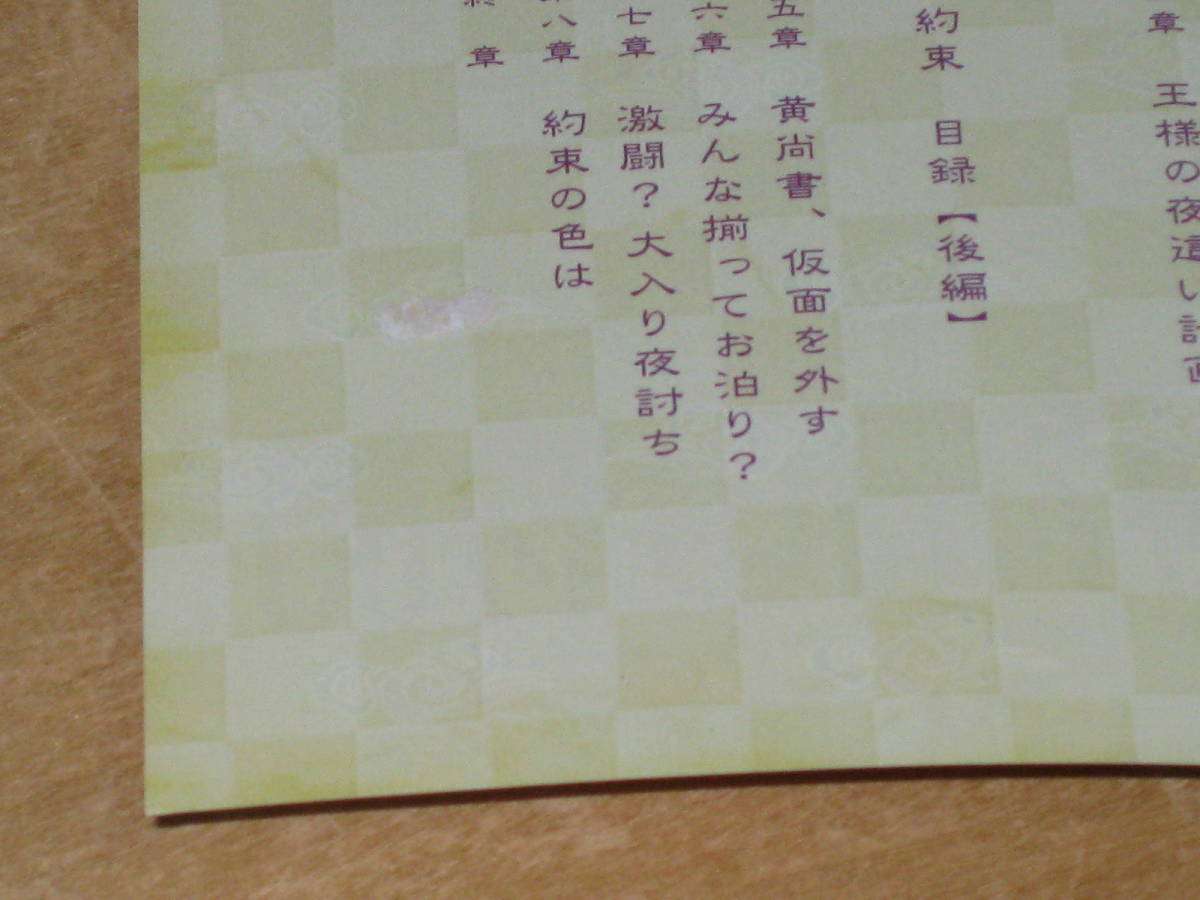 章 王様の夜這い計画
約束 目録【後編】
五章 黄尚書、仮面を外す
六章 みんな揃ってお泊り？
七章 激闘？大入り夜討ち
八章 約束の色は
章